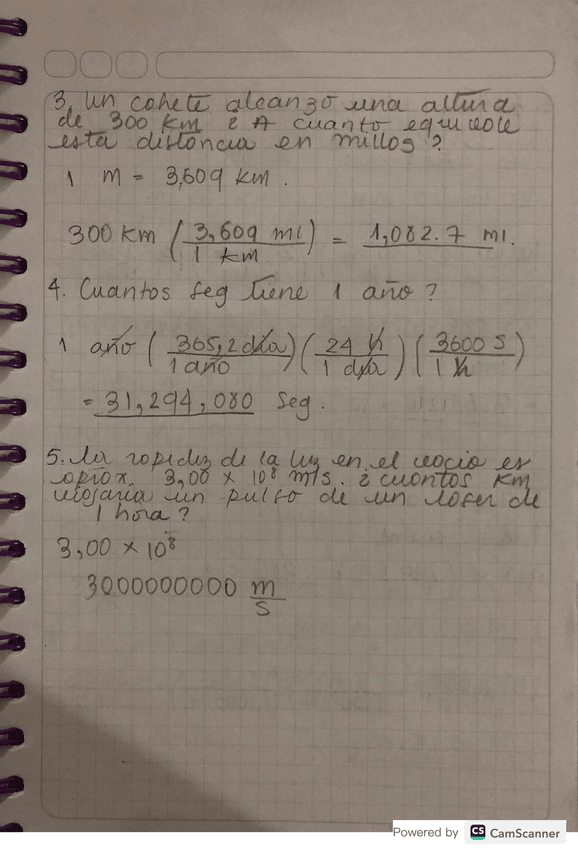 3. Un cohete alcanzo una altura
de 300 km ¿ A cuanto equivale
esta distancia en millas ?
1 m = 3,609 km.
300 km ( 3,609 mi / 1 km ) = 1,082.7 mi.
4. Cuantos seg tiene 1 año ?
1 año ( 365,2 dia / 1 año ) ( 24 h / 1 dia ) ( 3600 s / 1 h )
= 31,294,080 seg.
5. La rapidez de la luz en el vacio es
aprox. 3,00 x 10⁸ m/s. ¿ cuantos km
viajaria un pulso de un laser de
1 hora ?
3,00 x 10⁸
3000000000 m/s
Powered by CS CamScanner